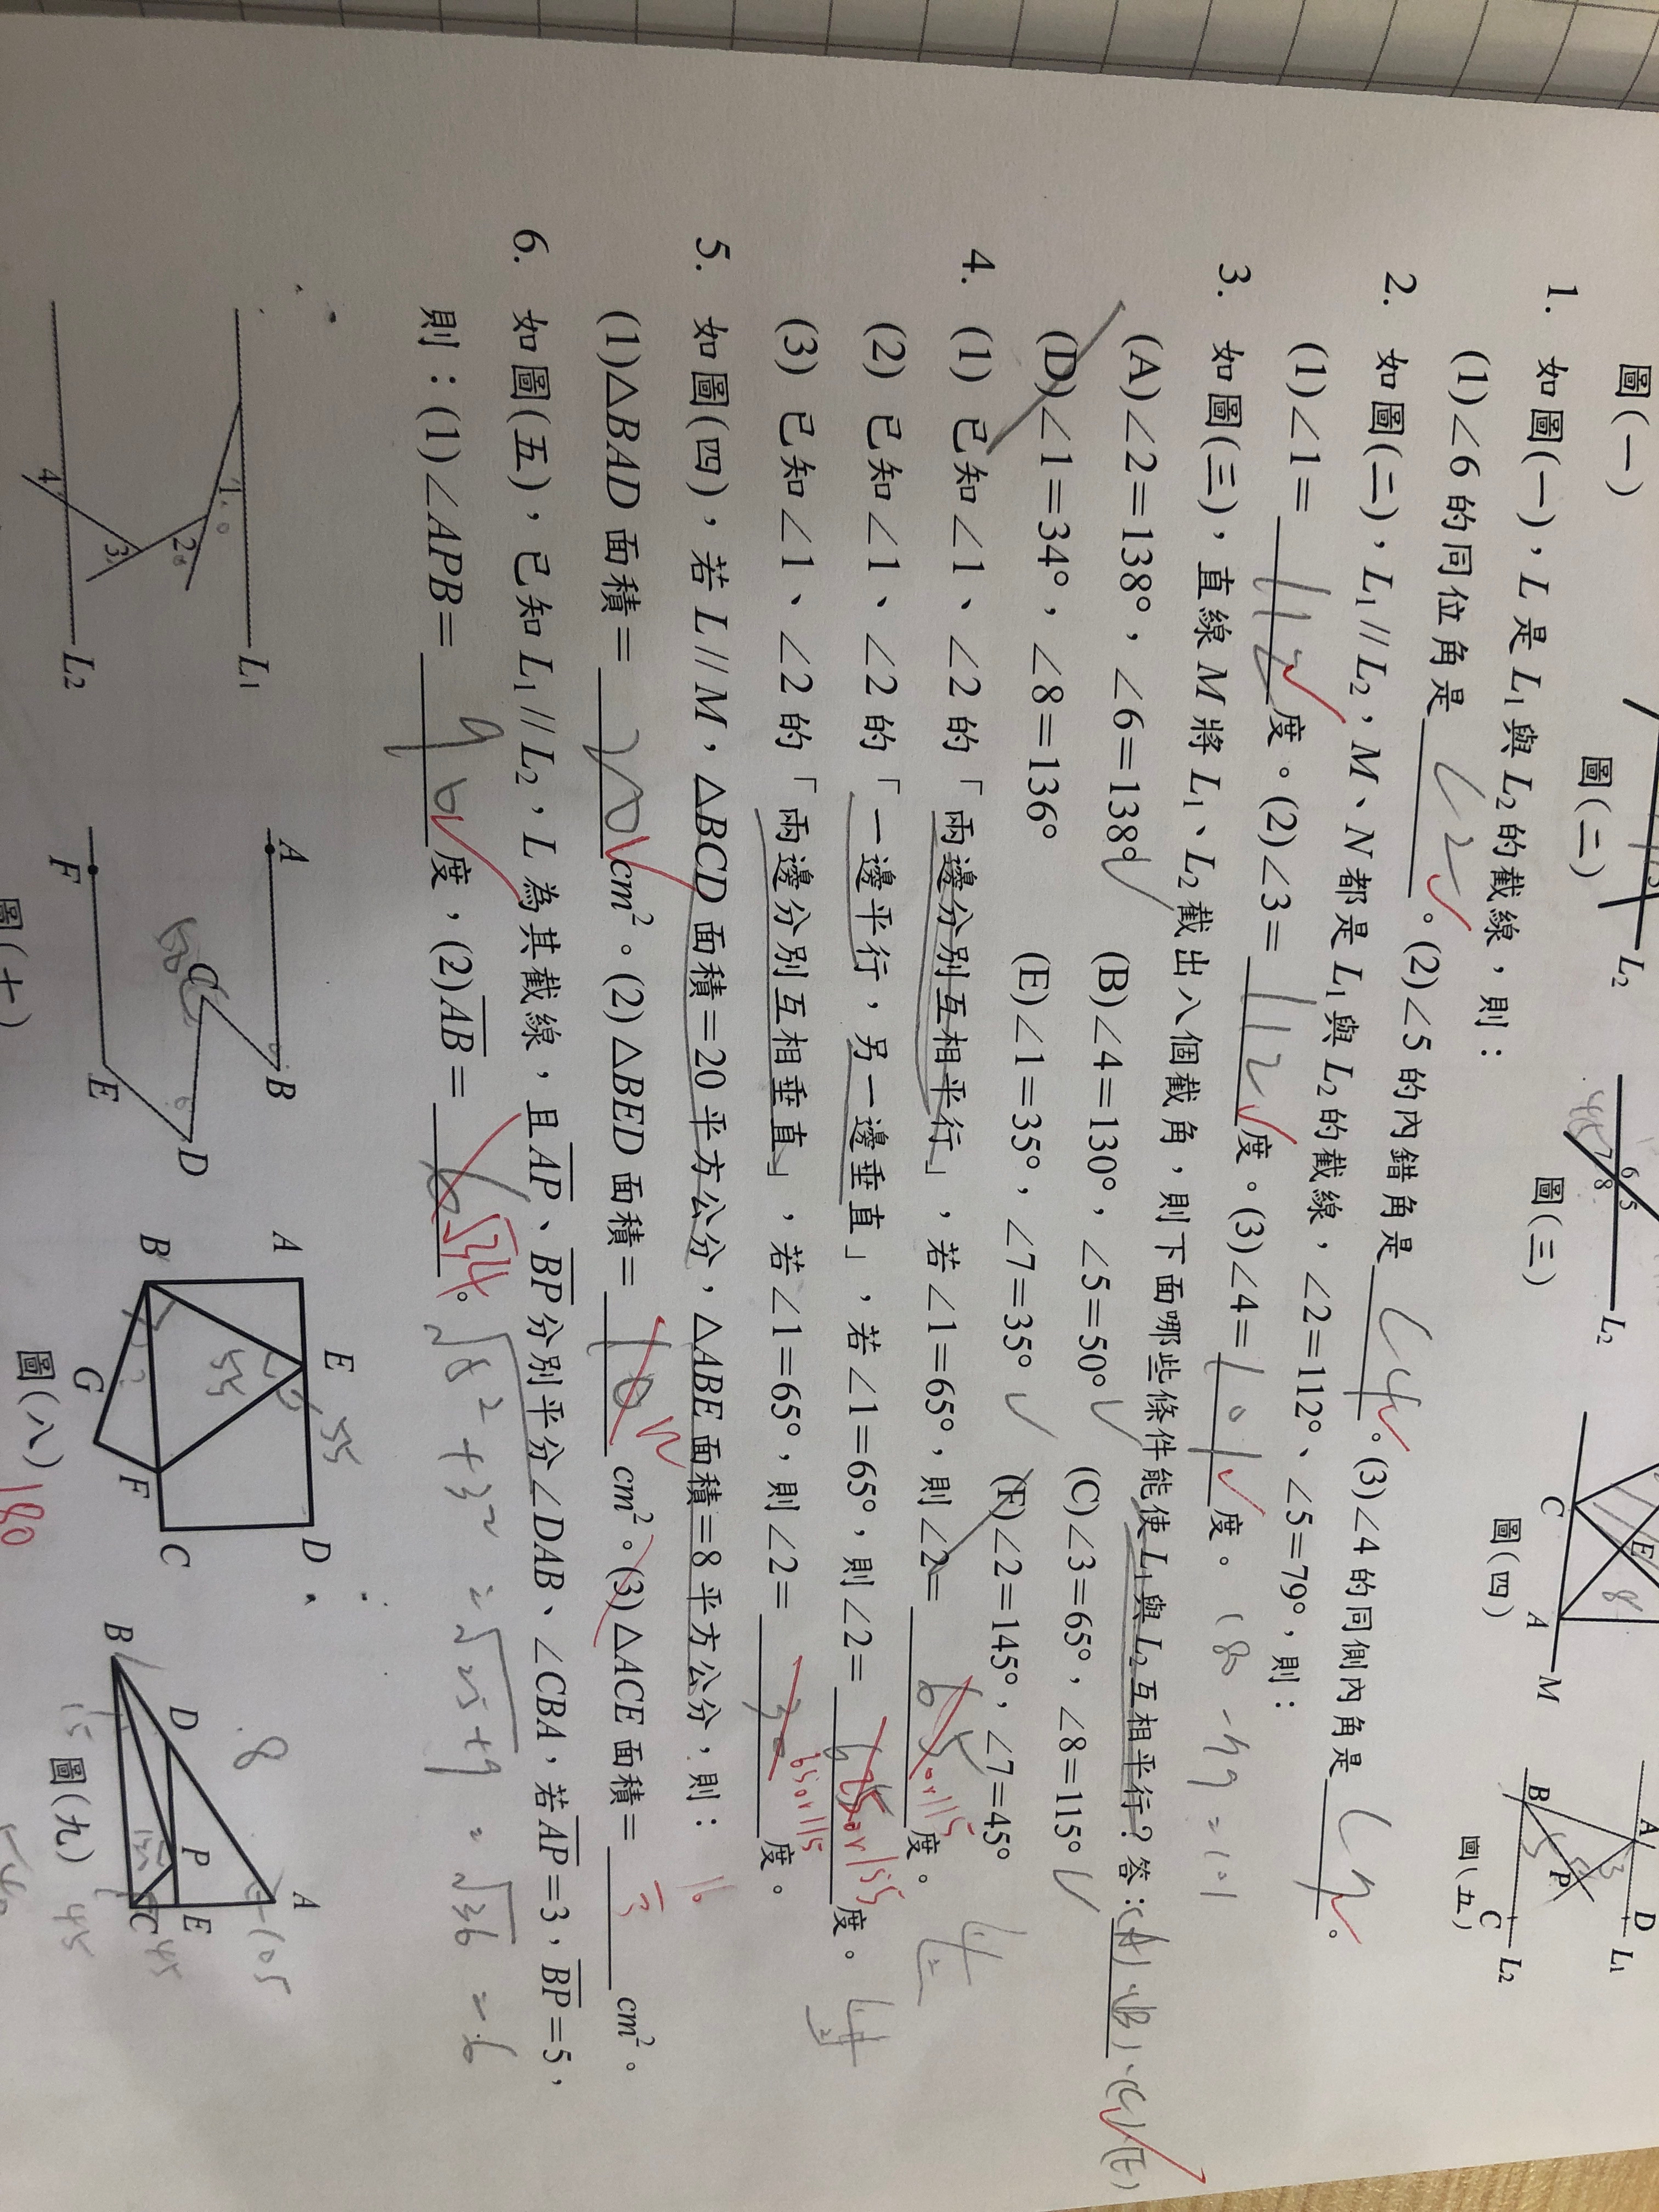 圖(一)
圖(二)
圖(三)
圖(四)
圖(五)
L₂
6 5
7 8
L₂
C
E
8
A
M
A
D
L₁
3
B
P
5
C
L₂
1. 如圖(一),L 是 L₁ 與 L₂ 的截線,則:
(1)∠6 的同位角是 ∠2 。(2)∠5 的內錯角是 ∠4 。(3)∠4 的同側內角是 ∠7 。
2. 如圖(二),L₁//L₂,M、N 都是 L₁ 與 L₂ 的截線,∠2=112°、∠5=79°,則:
(1)∠1= 112 度。(2)∠3= 112 度。(3)∠4= 101 度。 180-79=101
3. 如圖(三),直線 M 將 L₁、L₂ 截出八個截角,則下面哪些條件能使 L₁ 與 L₂ 互相平行?答:(A)、(B)、(C)、(E)
(A)∠2=138°,∠6=138° (B)∠4=130°,∠5=50° (C)∠3=65°,∠8=115°
(D)∠1=34°,∠8=136° (E)∠1=35°,∠7=35° (F)∠2=145°,∠7=45°
4. (1) 已知∠1、∠2 的「兩邊分別互相平行」,若∠1=65°,則∠2= 65 or 115 度。
(2) 已知∠1、∠2 的「一邊平行,另一邊垂直」,若∠1=65°,則∠2= 25 or 155 度。
(3) 已知∠1、∠2 的「兩邊分別互相垂直」,若∠1=65°,則∠2= 65 or 115 度。
5. 如圖(四),若 L//M,△BCD 面積=20 平方公分,△ABE 面積=8 平方公分,則:
(1)△BAD 面積= 20 cm²。(2)△BED 面積= 10 12 cm²。(3)△ACE 面積= cm²。
6. 如圖(五),已知 L₁//L₂,L 為其截線,且 AP、BP 分別平分∠DAB、∠CBA,若 AP=3,BP=5,
則:(1)∠APB= 90 度,(2)AB= 6 √34 。
=√25+9 =√36 =6
L₁
1
2
3
4
L₂
A
B
C
D
E
F
圖(七)
A
E
D
55
55
B
G
F
C
圖(八)
180
A
8
105
D
P
E
B
C
15
45
45
圖(九)